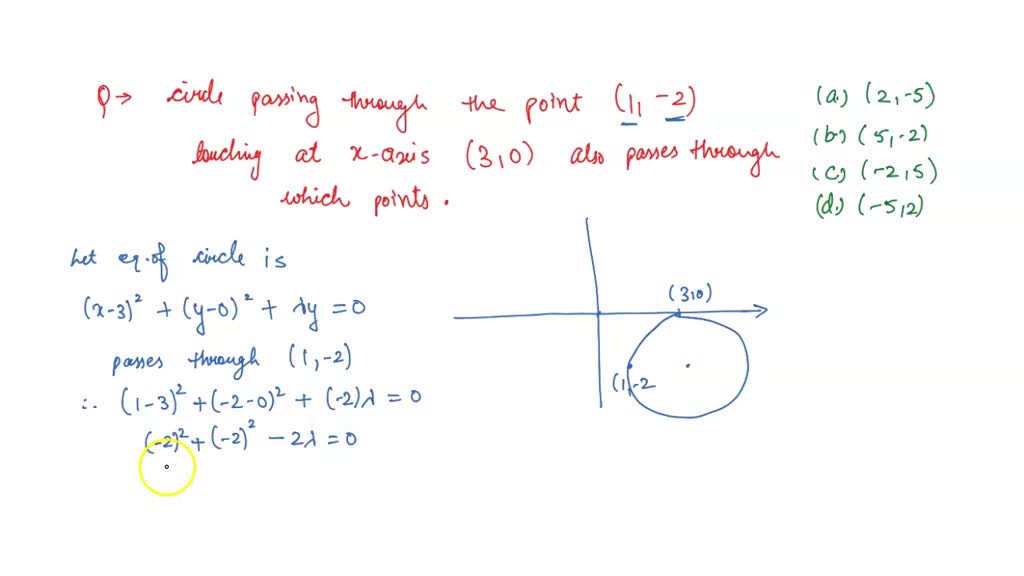 Q→ circle passing through the point (1, -2)
touching at x-axis (3,0) also passes through
which points.
(a) (2,-5)
(b) (5,-2)
(c) (-2,5)
(d.) (-5,2)
Let eq.of circle is
(x-3)² + (y-0)² + λy = 0
passes through (1,-2)
∴ (1-3)² + (-2-0)² + (-2)λ = 0
(-2)² + (-2)² - 2λ = 0
(3,0)
(1,-2